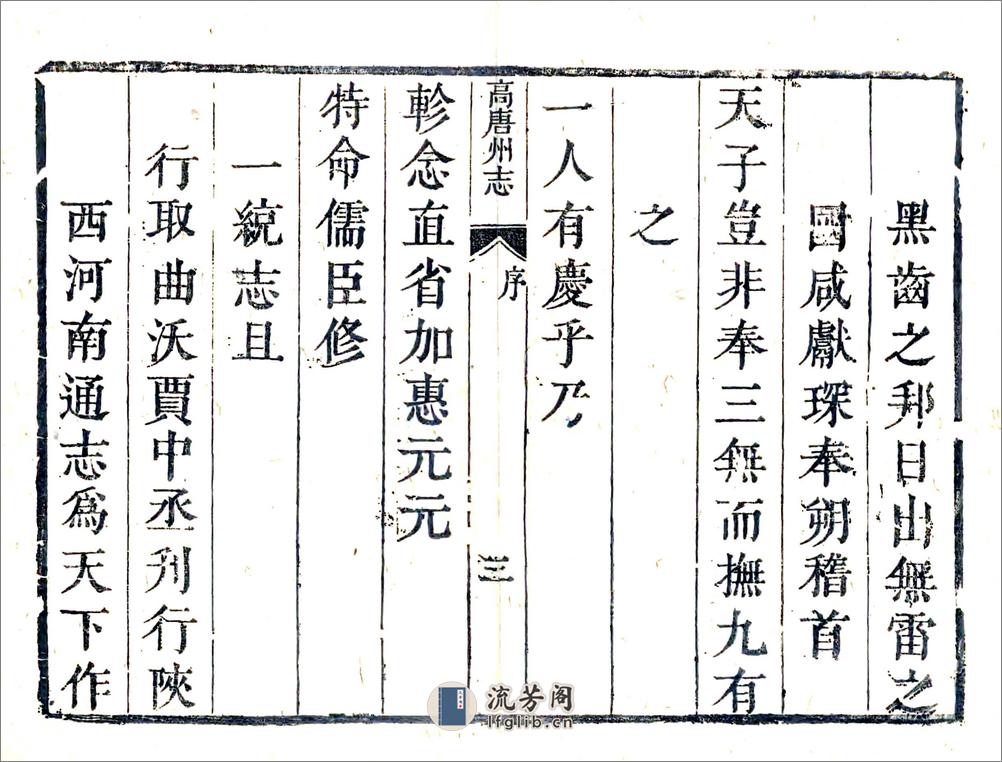 黑齒之鄁日出無雷之
國咸獻琛奉朔稽首
天子豈非奉三無而撫九有
之
一人有慶乎乃
高唐州志 序 三
軫念直省加惠元元
特命儒臣修
一統志且
行取曲沃賈中丞刋行陝
西河南通志爲天下作
流芳阁
lfglib.cn